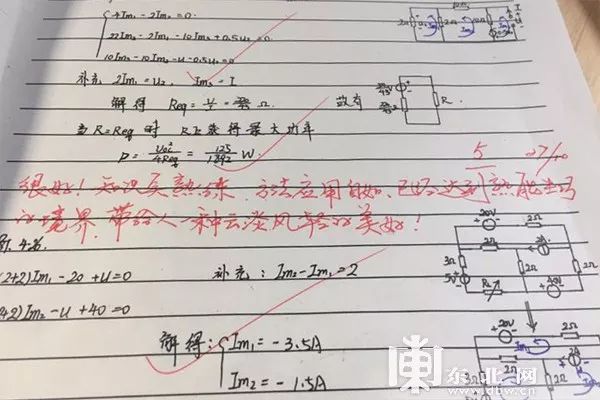 4Im₁-2Im₂=0.
22Im₂-2Im₁-10Im₃+0.5u₁=0
10Im₃-10Im₂-u-0.5u₁=0
补充 2Im₁=u₂, Im₃=I
解得 Req= Ω. 故有
R
当R=Req时 R上获得最大功率
P=Uoc²/4Req=125/1392 W.
5
27/10
很好!知识点熟练.方法应用自如.已经达到熟能生巧
的境界.带给人一种云淡风轻的美好!
4-26.
(2+2)Im₁-20+u=0 补充:Im₂-Im₁=2
+2)Im₂-u+40=0
解得:Im₁=-3.5A
Im₂=-1.5A
20V 2Ω
2Ω 2A
3Ω 2Ω 2Ω
5V 40V
20V 2Ω
2Ω 2A
Im₁
2Ω
東北网
www.dbw.cn